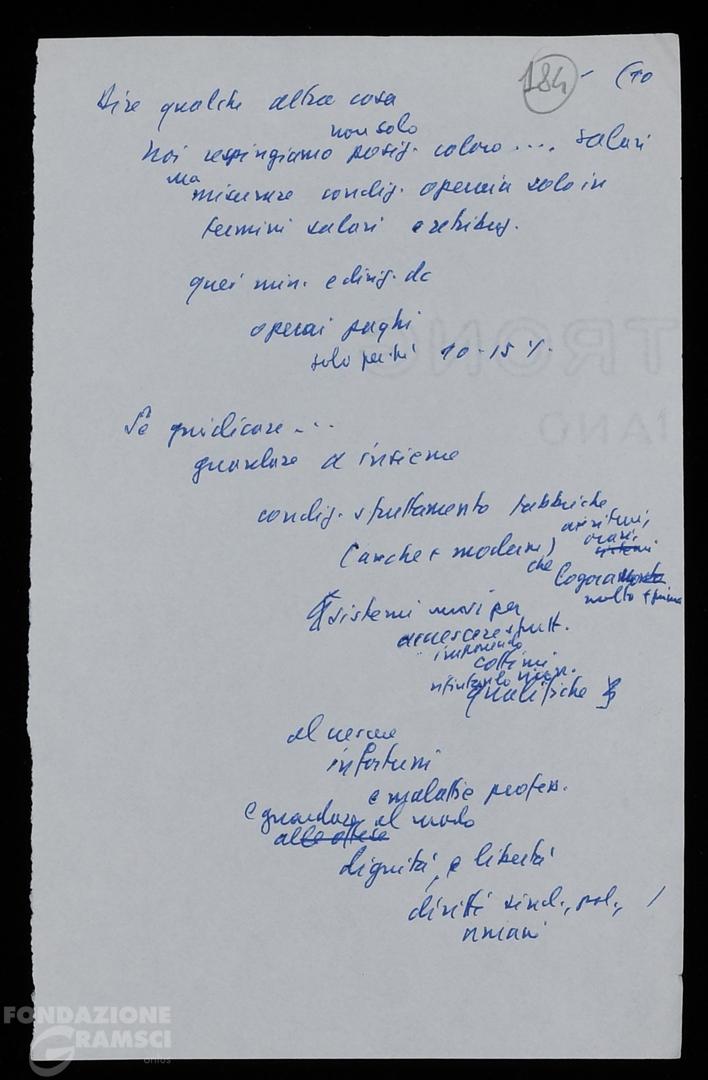 184 - (10
Dire qualche altra cosa
non solo
Noi respingiamo posiz. coloro .... salari
ma
misurare condiz. operaia solo in
termini salari e retribuz.
quei min. e dirig. dc
operai paghi
solo perché 10-15%.
Se giudicare ...
guardare a insieme
condiz. sfruttamento fabbriche
ai ritmi,
orari,
sistemi
(anche + moderne)
che
logora
molto + prima
sistemi nuovi per
accrescere sfrutt.
imponendo
cottimi
rifiutando
qualifiche
al crescere
infortuni
e malattie profess.
e guardare al modo
alle offese
dignità, e libertà
diritti sind., pol., /
umani
TRONO
IANO
FONDAZIONE
GRAMSCI
onlus